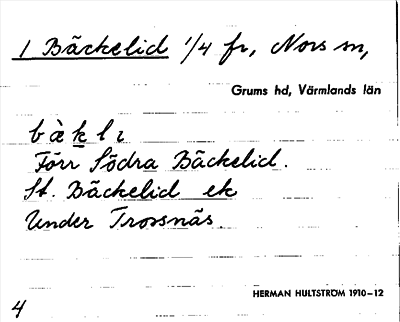 1 Bäckelid 1/4 fr, Nors sn,
Grums hd, Värmlands län
bὰklı
Förr Södra Bäckelid.
St. Bäckelid ek
Under Trossnäs.
HERMAN HULTSTRÖM 1910–12
4